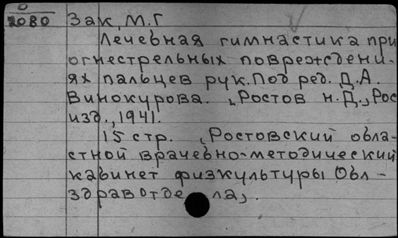 2080 Зак, М.Г
Лечебная гимнастика при
огнестрельных поврежdени-
ях пальцев рук. Под ред. Д.А.
Винокурова. „Ростов н.Д., Рос
изд., 1941.
15 стр. „Ростовский обла-
стной врачебно-методический
кабинет физкультуры Обл-
здравотде ла„.